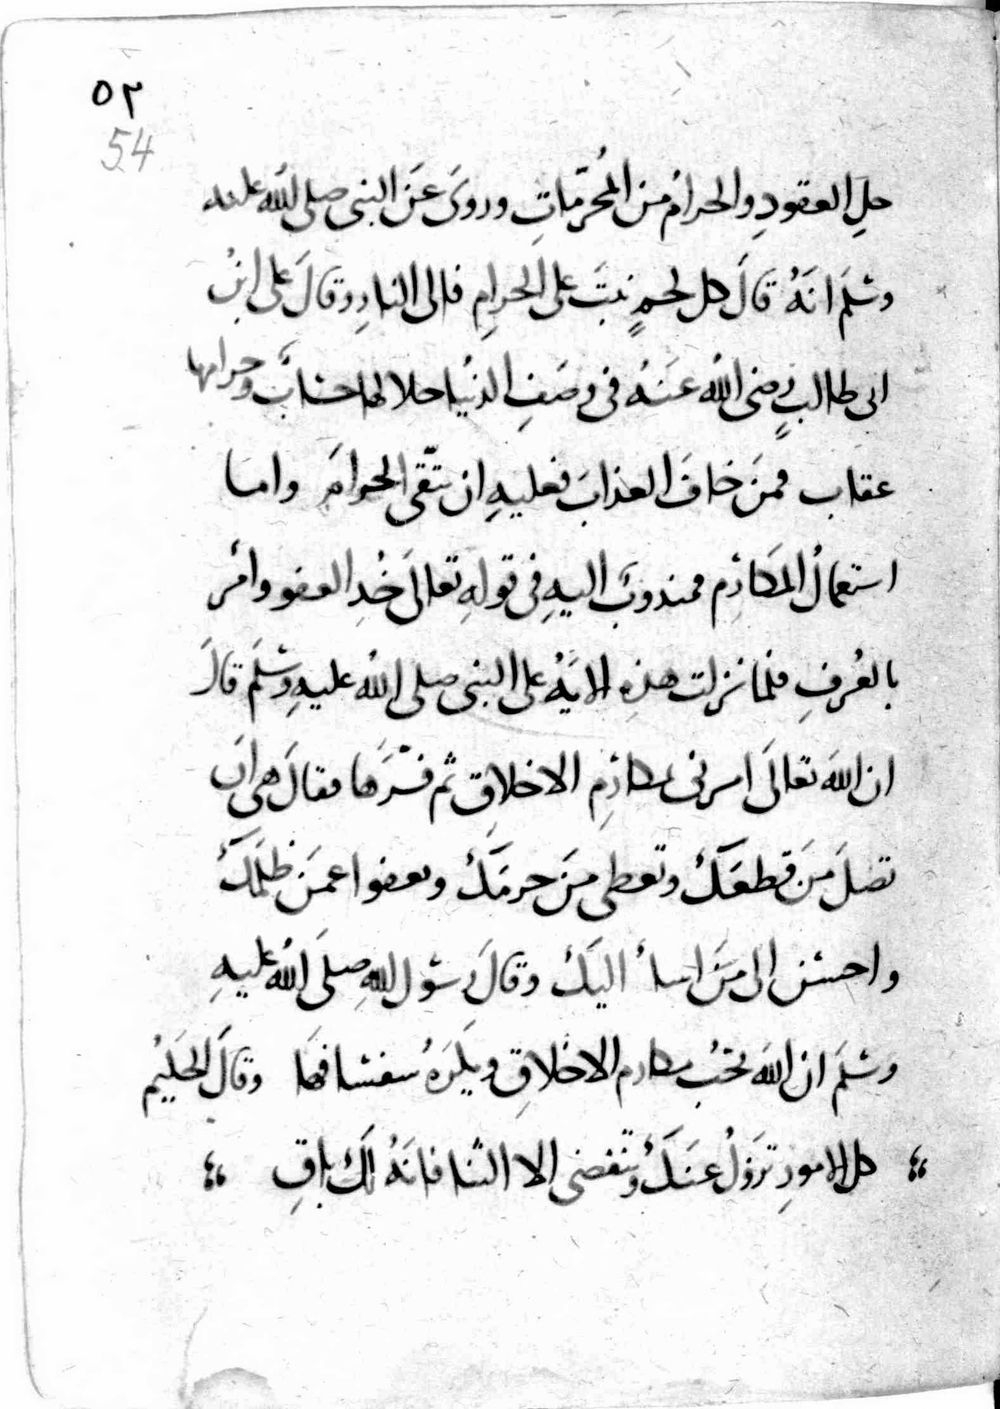 ٥٢
54
حلِ العقودِ والحرامُ من المُحرّماتِ وروىَ عَن النبى صلى اللهُ عليه
وسَلمَ انهُ قالَ كل لحمٍ نبتَ على الحرامِ فالى النارِ وقالَ على ابنُ
ابى طالبٍ رضى اللهُ عنهُ فى وصَفِ الدنيا حلالها حسابٌ وحرامها
عقاب فمنَ خافَ العذابَ فعليهِ ان يتّقى الحرامَ واما
استعمالُ المكَارِم فمندوبٌ اليهِ فى قولهِ تعالىَ خُذِ العفو وامُر
بالعُرفِ فلما نزلت هذهِ الايةُ على النبى صلى اللهُ عليهِ وسَلمَ قالَ
ان اللهَ تعالىَ امرنى بمكارِمِ الاخلاقِ ثم فسّرَها فقالَ هى ان
تصلَ مَن قطعَكَ وتعطى مَن حرمَكَ وتعفوا عمَن ظلمَكَ
واحسن الى مَن اسأ اليكَ وقالَ رسول اللهِ صلَى اللهُ عليهِ
وسَلمَ ان اللهَ يحبُ مكارم الاخلاقِ ويَكرهُ سفسافهَا وقالَ الحَكيمُ
كل الامورِ تزولُ عنكَ وتنقضى الا الثنا فانهُ لكَ باقِ